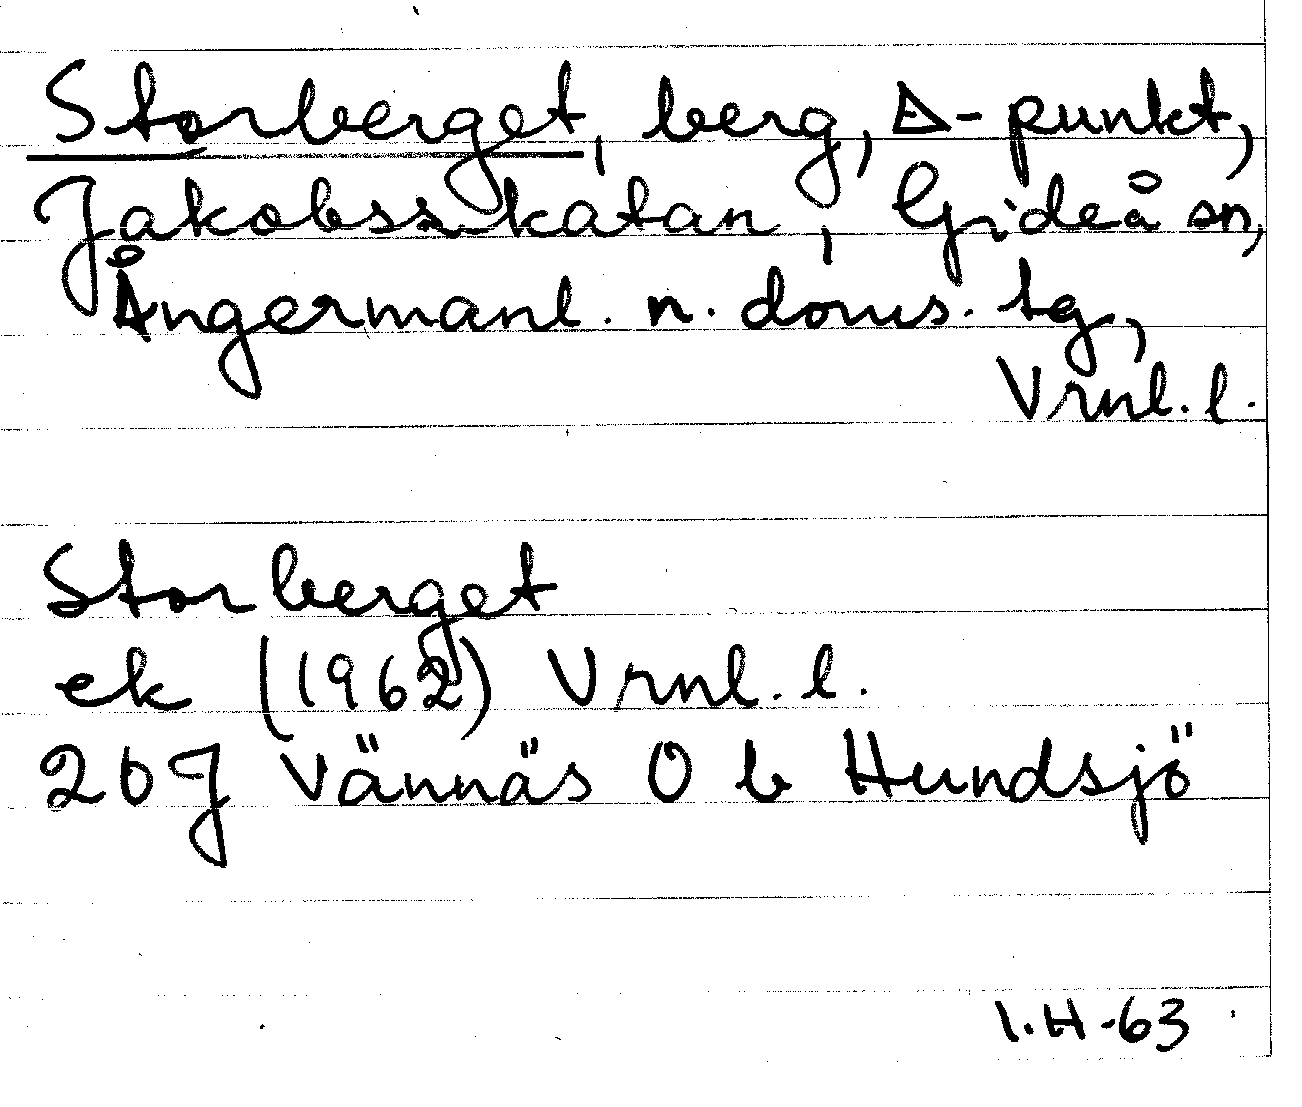 Storberget, berg, Δ-punkt,
Jakobsskatan, Gideå sn,
Ångermanl. n. doms. tg,
Vrnl. l.
Storberget
ek (1962) Vrnl. l.
20J Vännäs 0 b Hundsjö
I.H-63